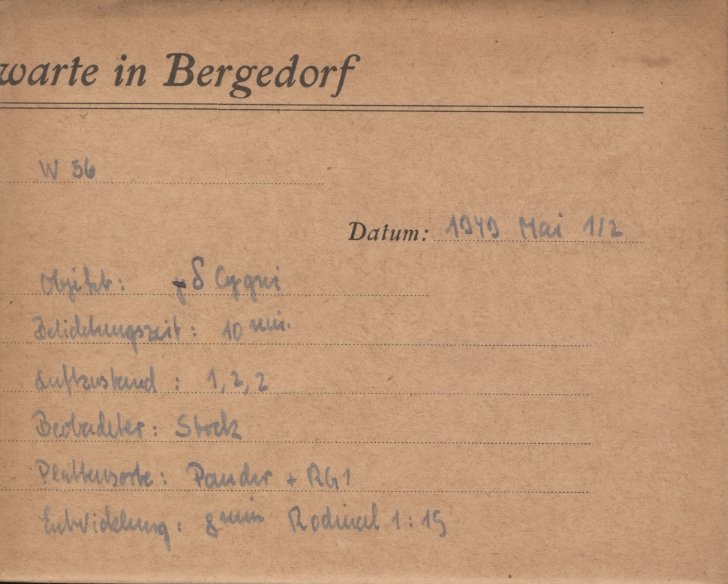 warte in Bergedorf
W 56
Datum: 1949 Mai 1/2
Objekt: γ δ Cygni
Belichtungszeit: 10 min.
Luftzustand: 1,2,2
Beobachter: Stock
Plattensorte: Pander + RG1
Entwicklung: 8 min Rodinal 1:19